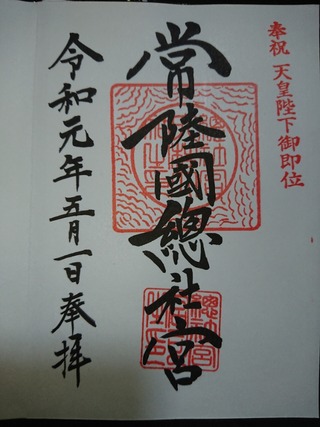 奉祝 天皇陛下御即位
常陸國總社宮
令和元年五月一日奉拝